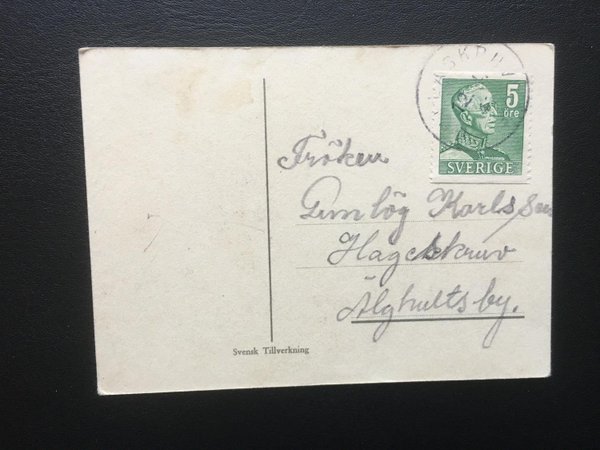 SKRUV
5
öre
SVERIGE
Fröken
Gunlög Karlsson
Hageskruv
Älghultsby.
Svensk Tillverkning